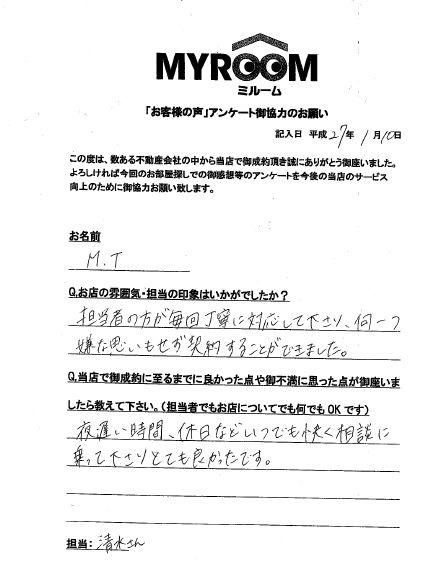 MYROOM
ミルーム
「お客様の声」アンケート御協力のお願い
記入日 平成 27年 1月10日
この度は、数ある不動産会社の中から当店で御成約頂き誠にありがとう御座いました。
よろしければ今回のお部屋探しでの御感想等のアンケートを今後の当店のサービス
向上のために御協力お願い致します。
お名前
M.T
Q.お店の雰囲気・担当の印象はいかがでしたか?
担当者の方が毎回丁寧に対応して下さり、何一つ
嫌な思いもせず契約することができました。
Q.当店で御成約に至るまでに良かった点や御不満に思った点が御座いま
したら教えて下さい。(担当者でもお店についてでも何でもOKです)
夜遅い時間、休日などいつでも快く相談に
乗って下さりとても良かったです。
担当:清水さん